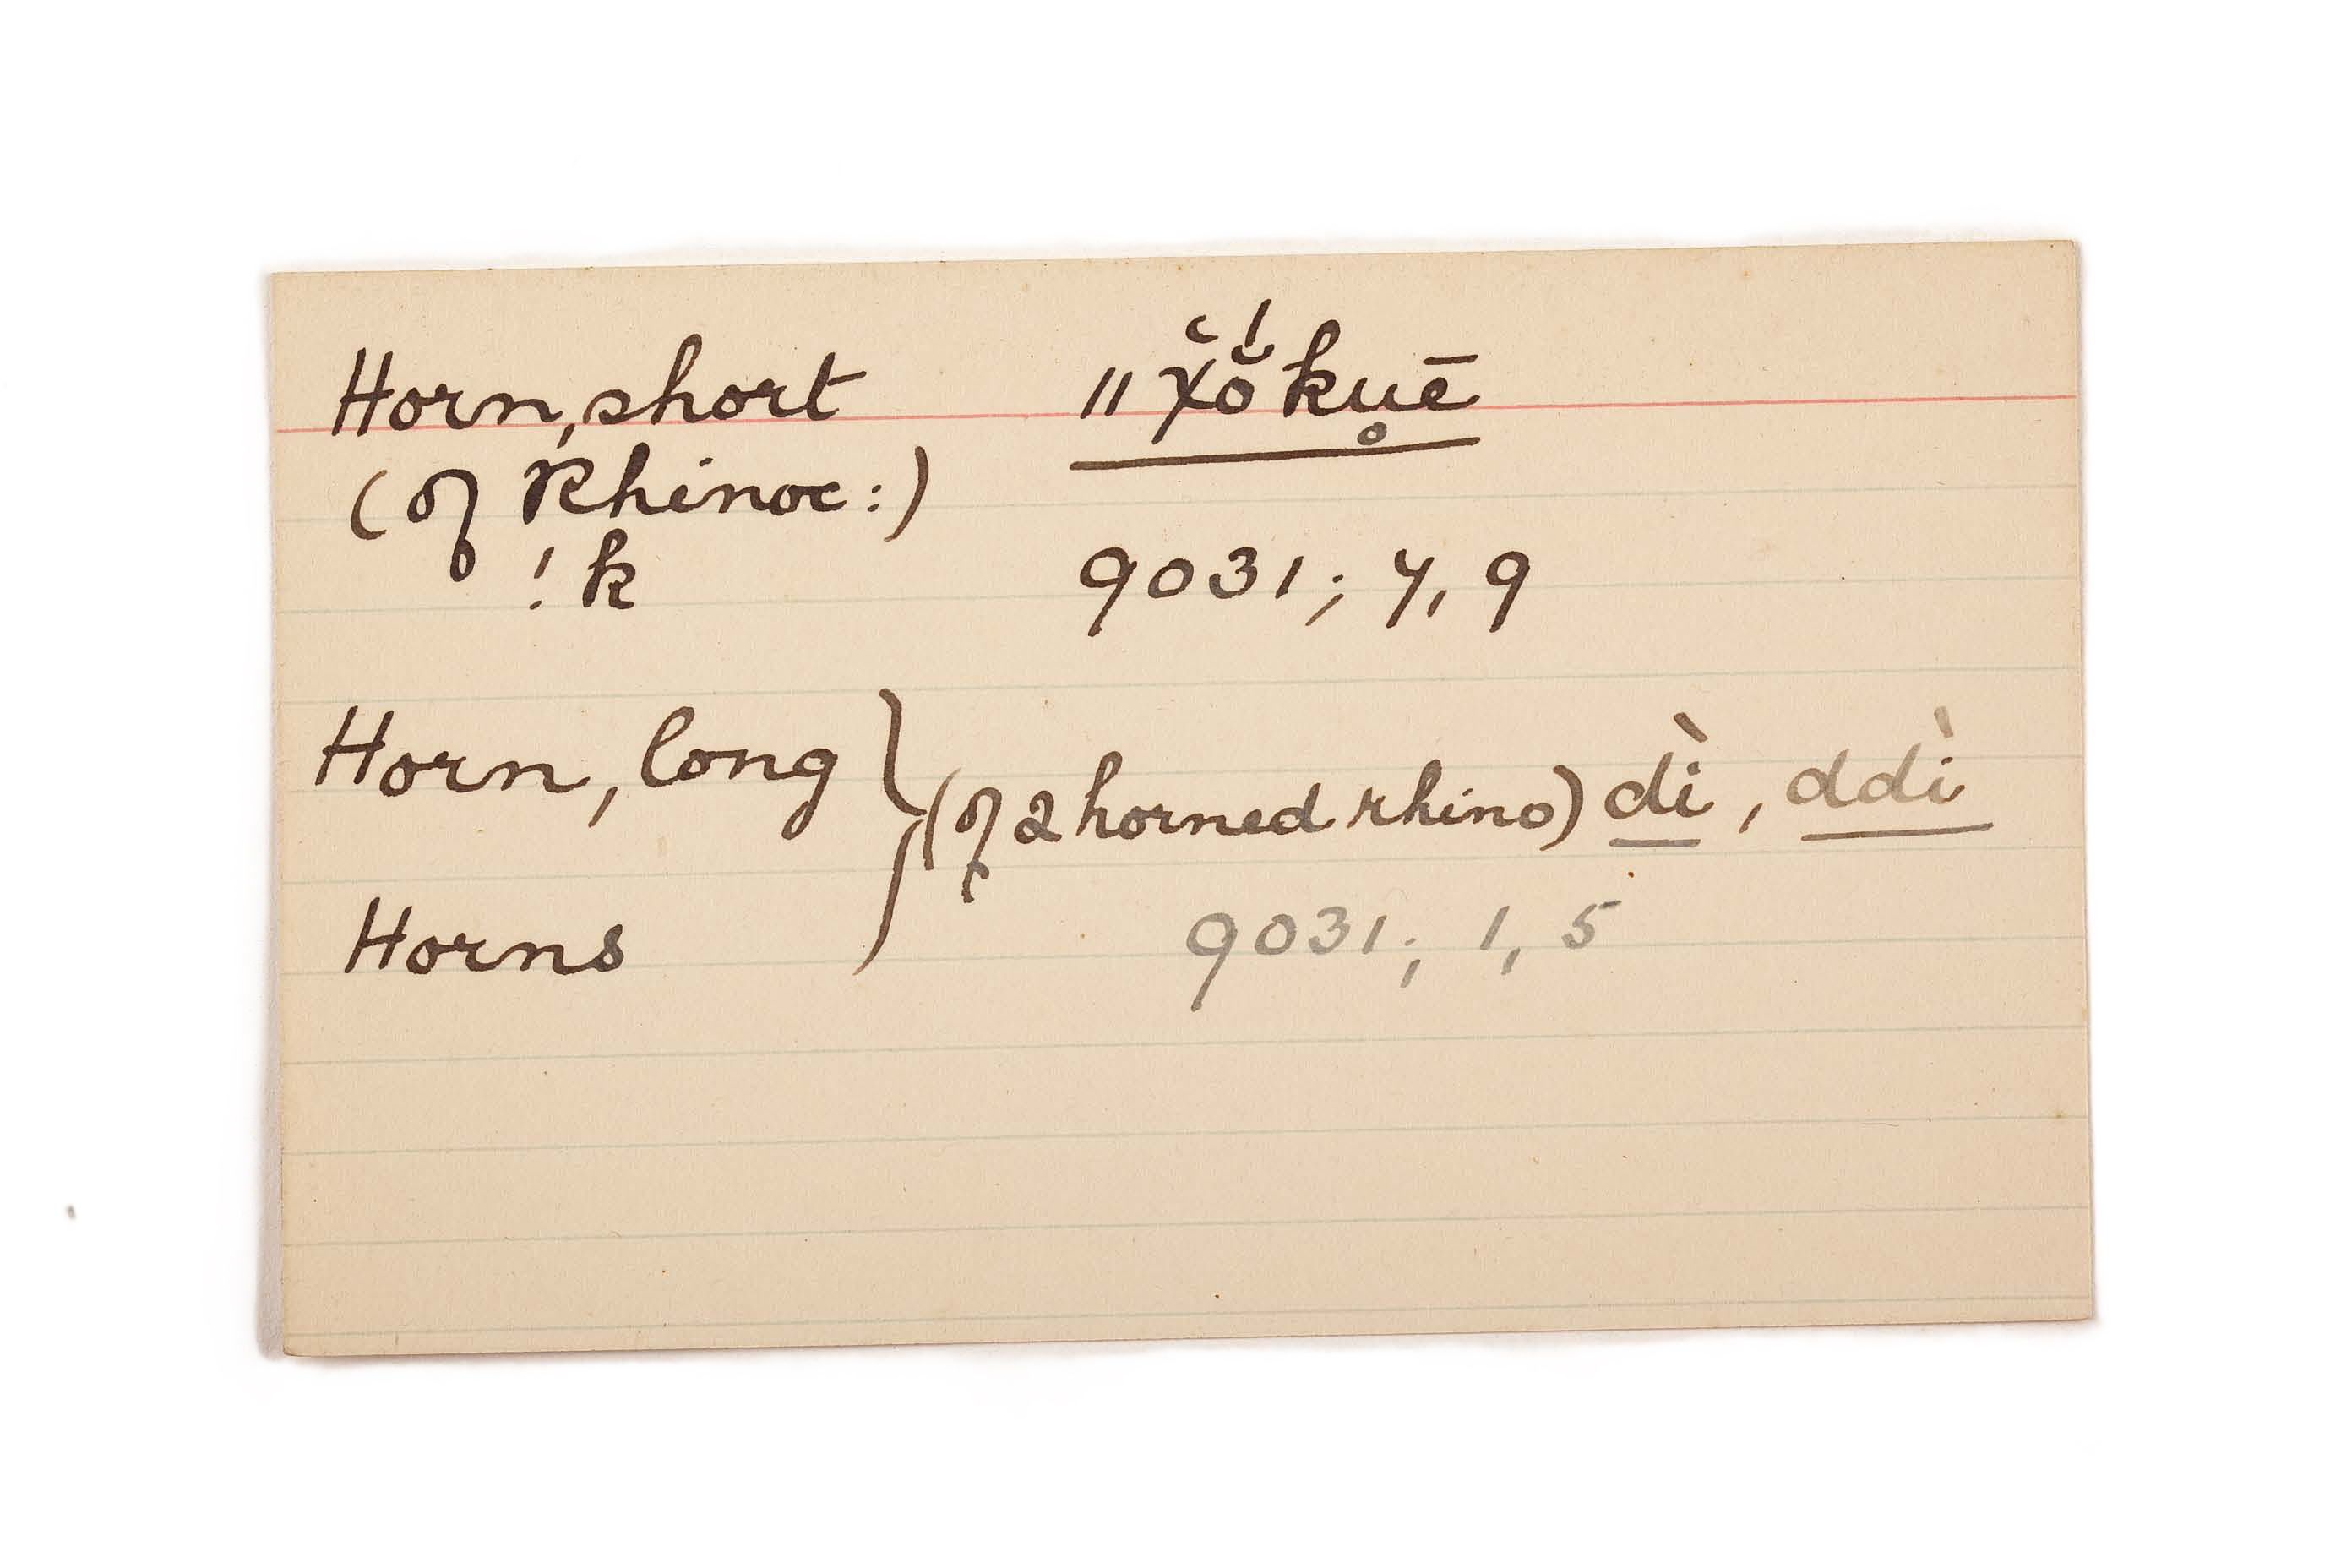 Horn, short ǁχ̆ŏ́ku̥ē
(of Rhinoc:)
!k 9031; 7, 9
Horn, long } (of 2 horned rhino) dì, ddì
Horns 9031; 1, 5